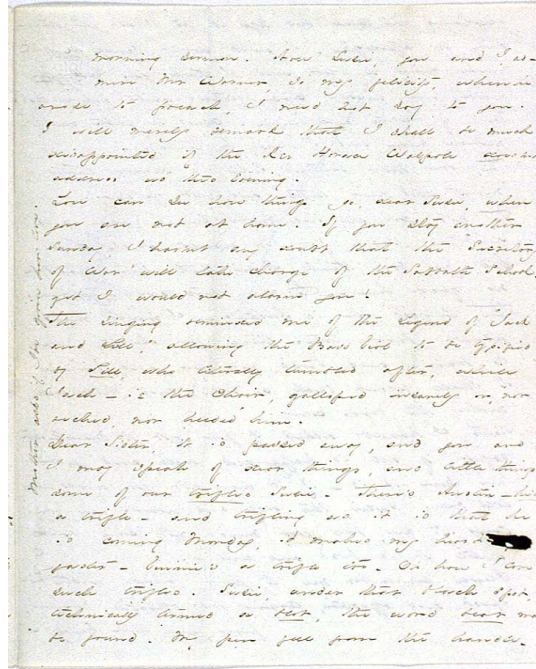 morning sermon. How Susie, you and I ad-
mire Mr Warner, do my felicity, when he
arose to preach, I need not say to you.
I will merely remark that I shall be much
disappointed if the Rev Horace Walpole doesn't
address us this evening.
You can see how things go, dear Susie, when
you are not at home. If you stay another
Sunday, I hav'nt any doubt that the Secretary
of War will take charge of the Sabbath School,
yet I would not alarm you!
The singing reminded me of the Legend of "Jack
and Gill," allowing the Bass Viol to be typified
by Gill, who literally tumbled after, while
Jack - i.e the Choir, gallopped insanely on, nor
recked, nor heeded him.
Dear Sister, it is passed away, and you and
I may speak of dear things, and little things
some of our trifles Susie - There's Austin - he's
a trifle - and trifling as it is that he
is coming Monday, it makes my heart
faster - Vinnie's a trifle too - Oh how I love
such trifles. Susie, under that black spot,
technically termed a blot, the word beat may
be found. My pen fell from the handle -
Mother asks if I've given her love.